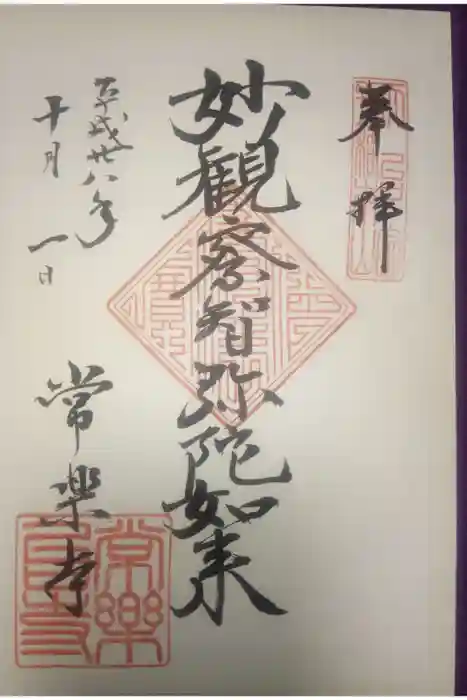 奉拝
妙観察智弥陀如来
平成廿八年
十月一日
常楽寺